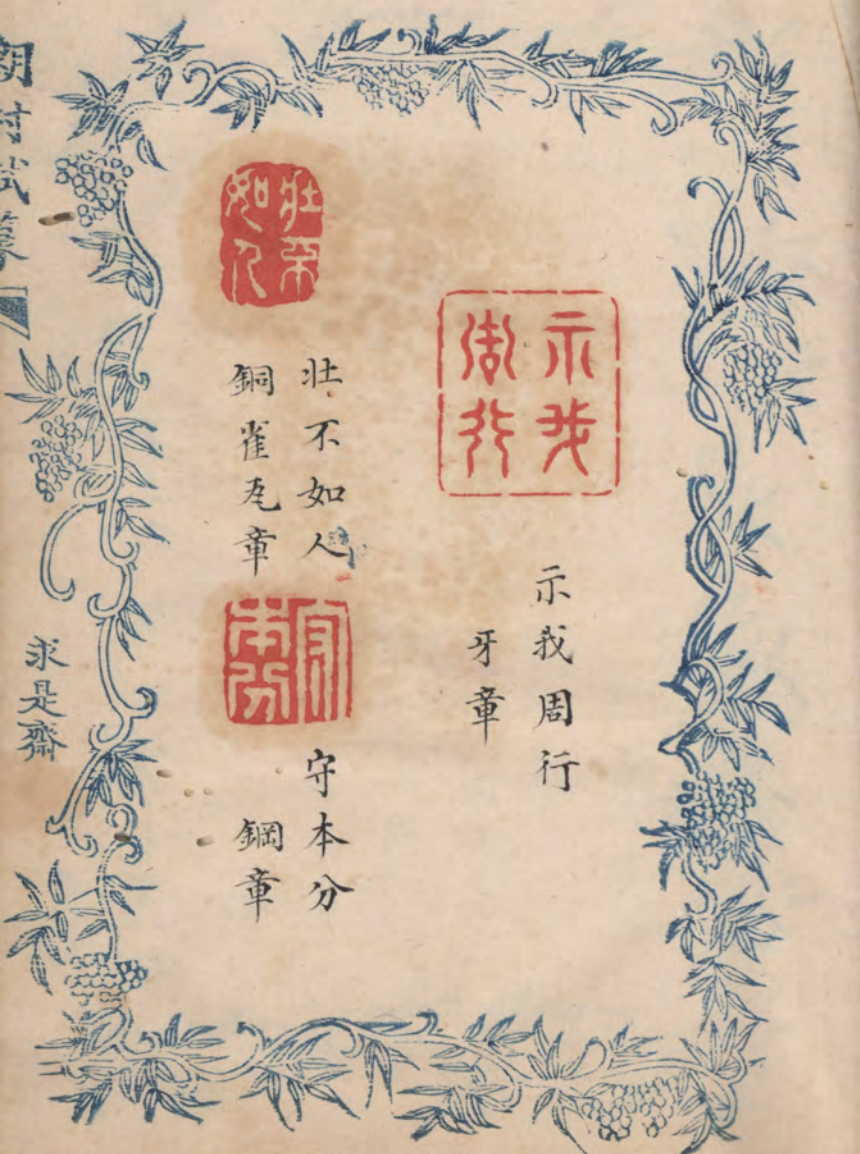 示我周行
示我周行
牙章
壯不如人
壯不如人
銅雀瓦章
守本分
守本分
鋼章
求是齋